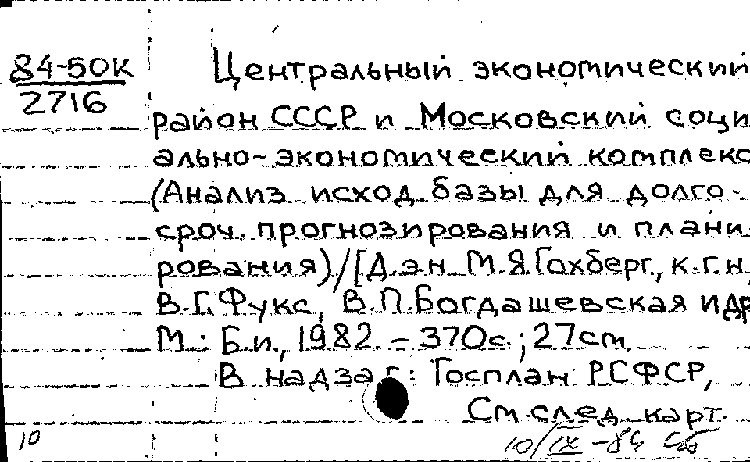 84-50К
2716
Центральный экономический
район СССР и Московский соци
ально-экономический комплекс
(Анализ исход. базы для долго-
сроч. прогнозирования и плани
рования)/[Д.э.н. М.Я.Гохберг, к.г.н,
В.Г.Фукс, В.П.Богдашевская и др
М.: Б.и., 1982. - 370с.; 27см.
В надзаг.: Госплан РСФСР,
См.след.карт.
10
10/IX-84